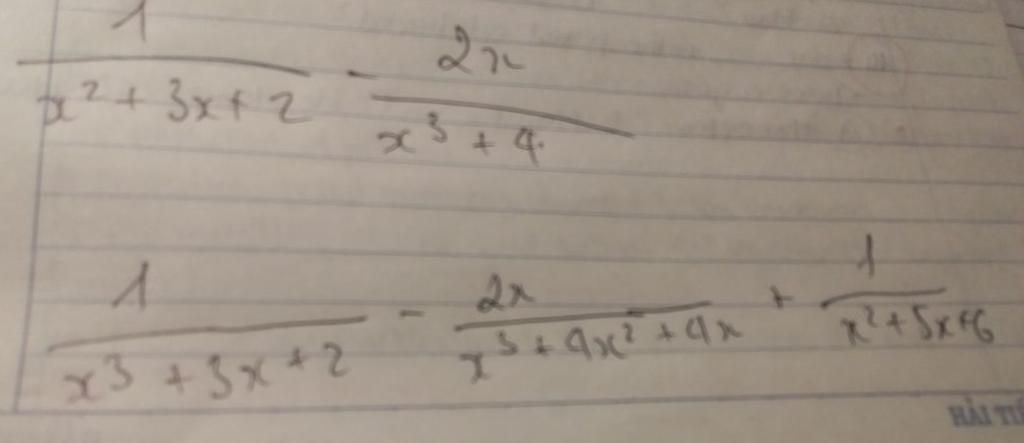 1/(x² + 3x + 2) - 2x/(x³ + 4
1/(x³ + 3x + 2) - 2x/(x³ + 4x² + 4x) + 1/(x² + 5x + 6)
HẢI